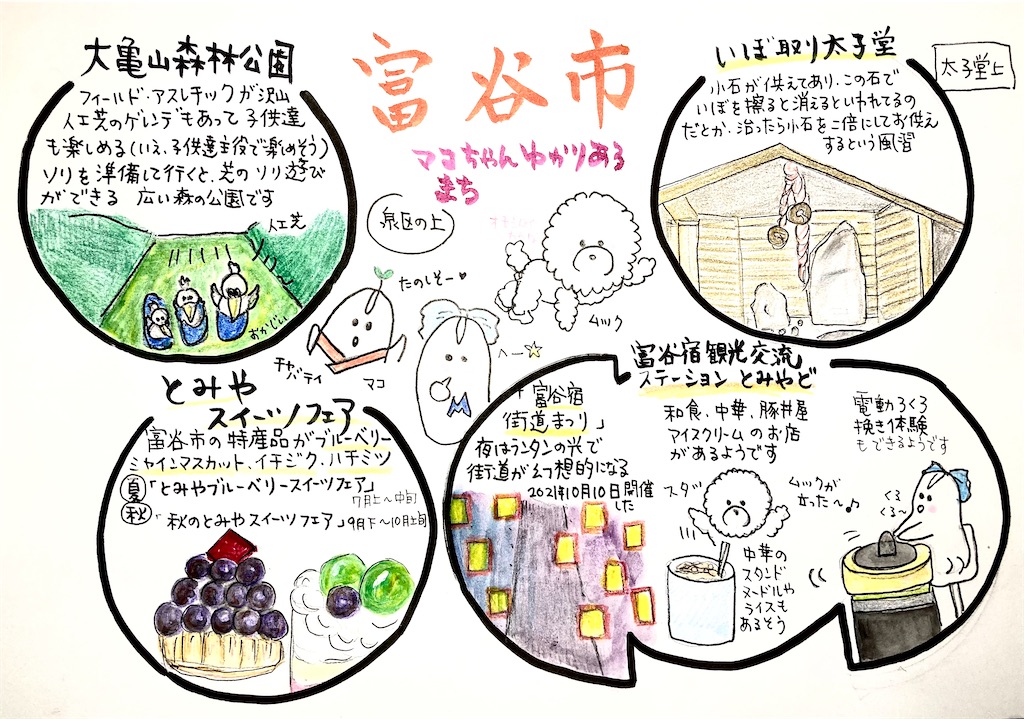 富谷市
マコちゃんゆかりある
まち
泉区の上
大亀山森林公園
フィールド・アスレチックが沢山
人工芝のゲレンデもあって子供達
も楽しめる(いえ、子供達主役で楽しめそう)
ソリを準備して行くと、芝のソリ遊び
ができる 広い森の公園です
人工芝
おかじい
いぼ取り太子堂
太子堂上
小石が供えてあり、この石で
いぼを擦ると消えるといわれてるの
だとか、治ったら小石を二倍にしてお供え
するという風習
たのしそー
チャバティ
マコ
へー
ムック
とみや
スイーツフェア
富谷市の特産品がブルーベリー
シャインマスカット、イチジク、ハチミツ
夏「とみやブルーベリースイーツフェア」
7月上〜中旬
秋「秋のとみやスイーツフェア」9月下〜10月上旬
富谷宿観光交流
ステーション とみやど
「富谷宿
街道まつり」
夜はランタンの光で
街道が幻想的になる
2021年10月10日開催
した
和食、中華、豚丼屋
アイスクリームのお店
があるようです
電動ろくろ
挽き体験
もできるようです
スタッ
ムックが
立った〜♪
くる
くる〜
中華の
スタンド
ヌードルや
ライスも
あるそう